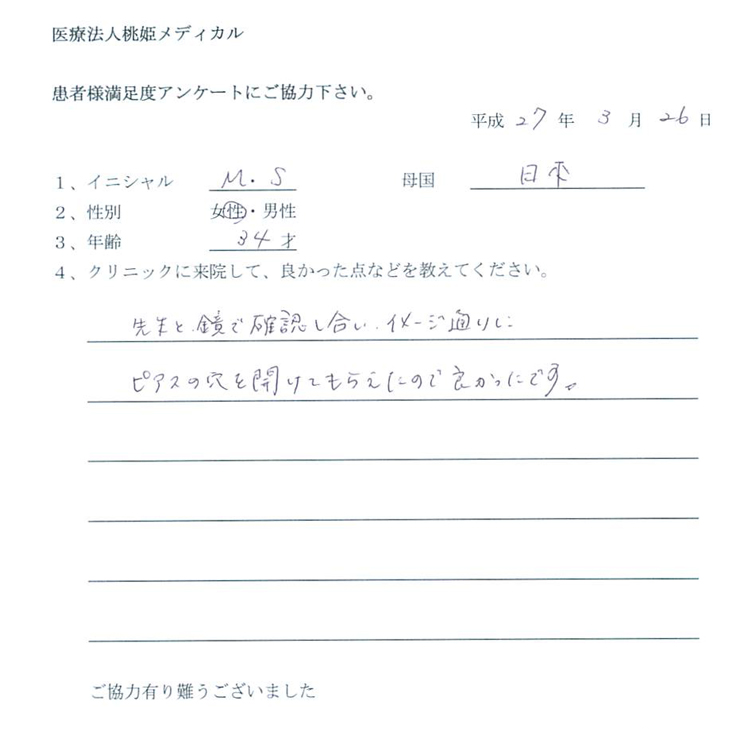 医療法人桃姫メディカル
患者様満足度アンケートにご協力下さい。
平成 27 年 3 月 26 日
1、イニシャル M.S 母国 日本
2、性別 女性・男性
3、年齢 34才
4、クリニックに来院して、良かった点などを教えてください。
先生と、鏡で確認し合い、イメージ通りに
ピアスの穴を開けてもらえたので良かったです。
ご協力有り難うございました